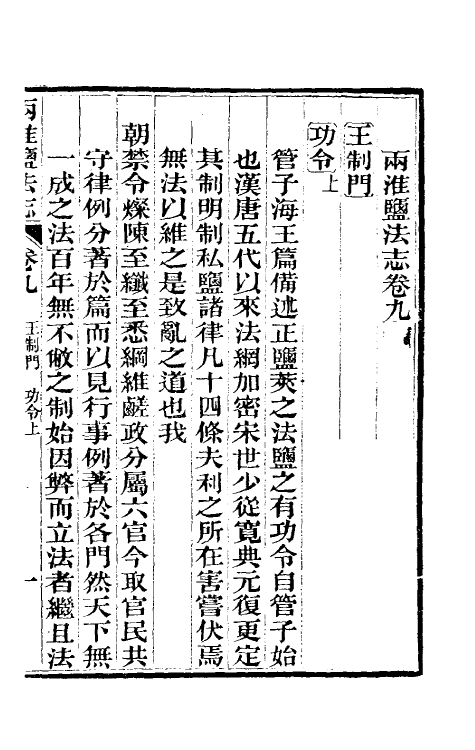 兩淮鹽法志卷九
王制門
功令上
管子海王篇備述正鹽筴之法鹽之有功令自管子始
也漢唐五代以來法網加密宋世少從寬典元復更定
其制明制私鹽諸律凡十四條夫利之所在害嘗伏焉
無法以維之是致亂之道也我
朝禁令燦陳至纖至悉綱維鹺政分屬六官今取官民共
守律例分著於篇而以見行事例著於各門然天下無
一成之法百年無不敝之制始因弊而立法者繼且法
兩淮鹽法志 卷九 王制門 功令上 一